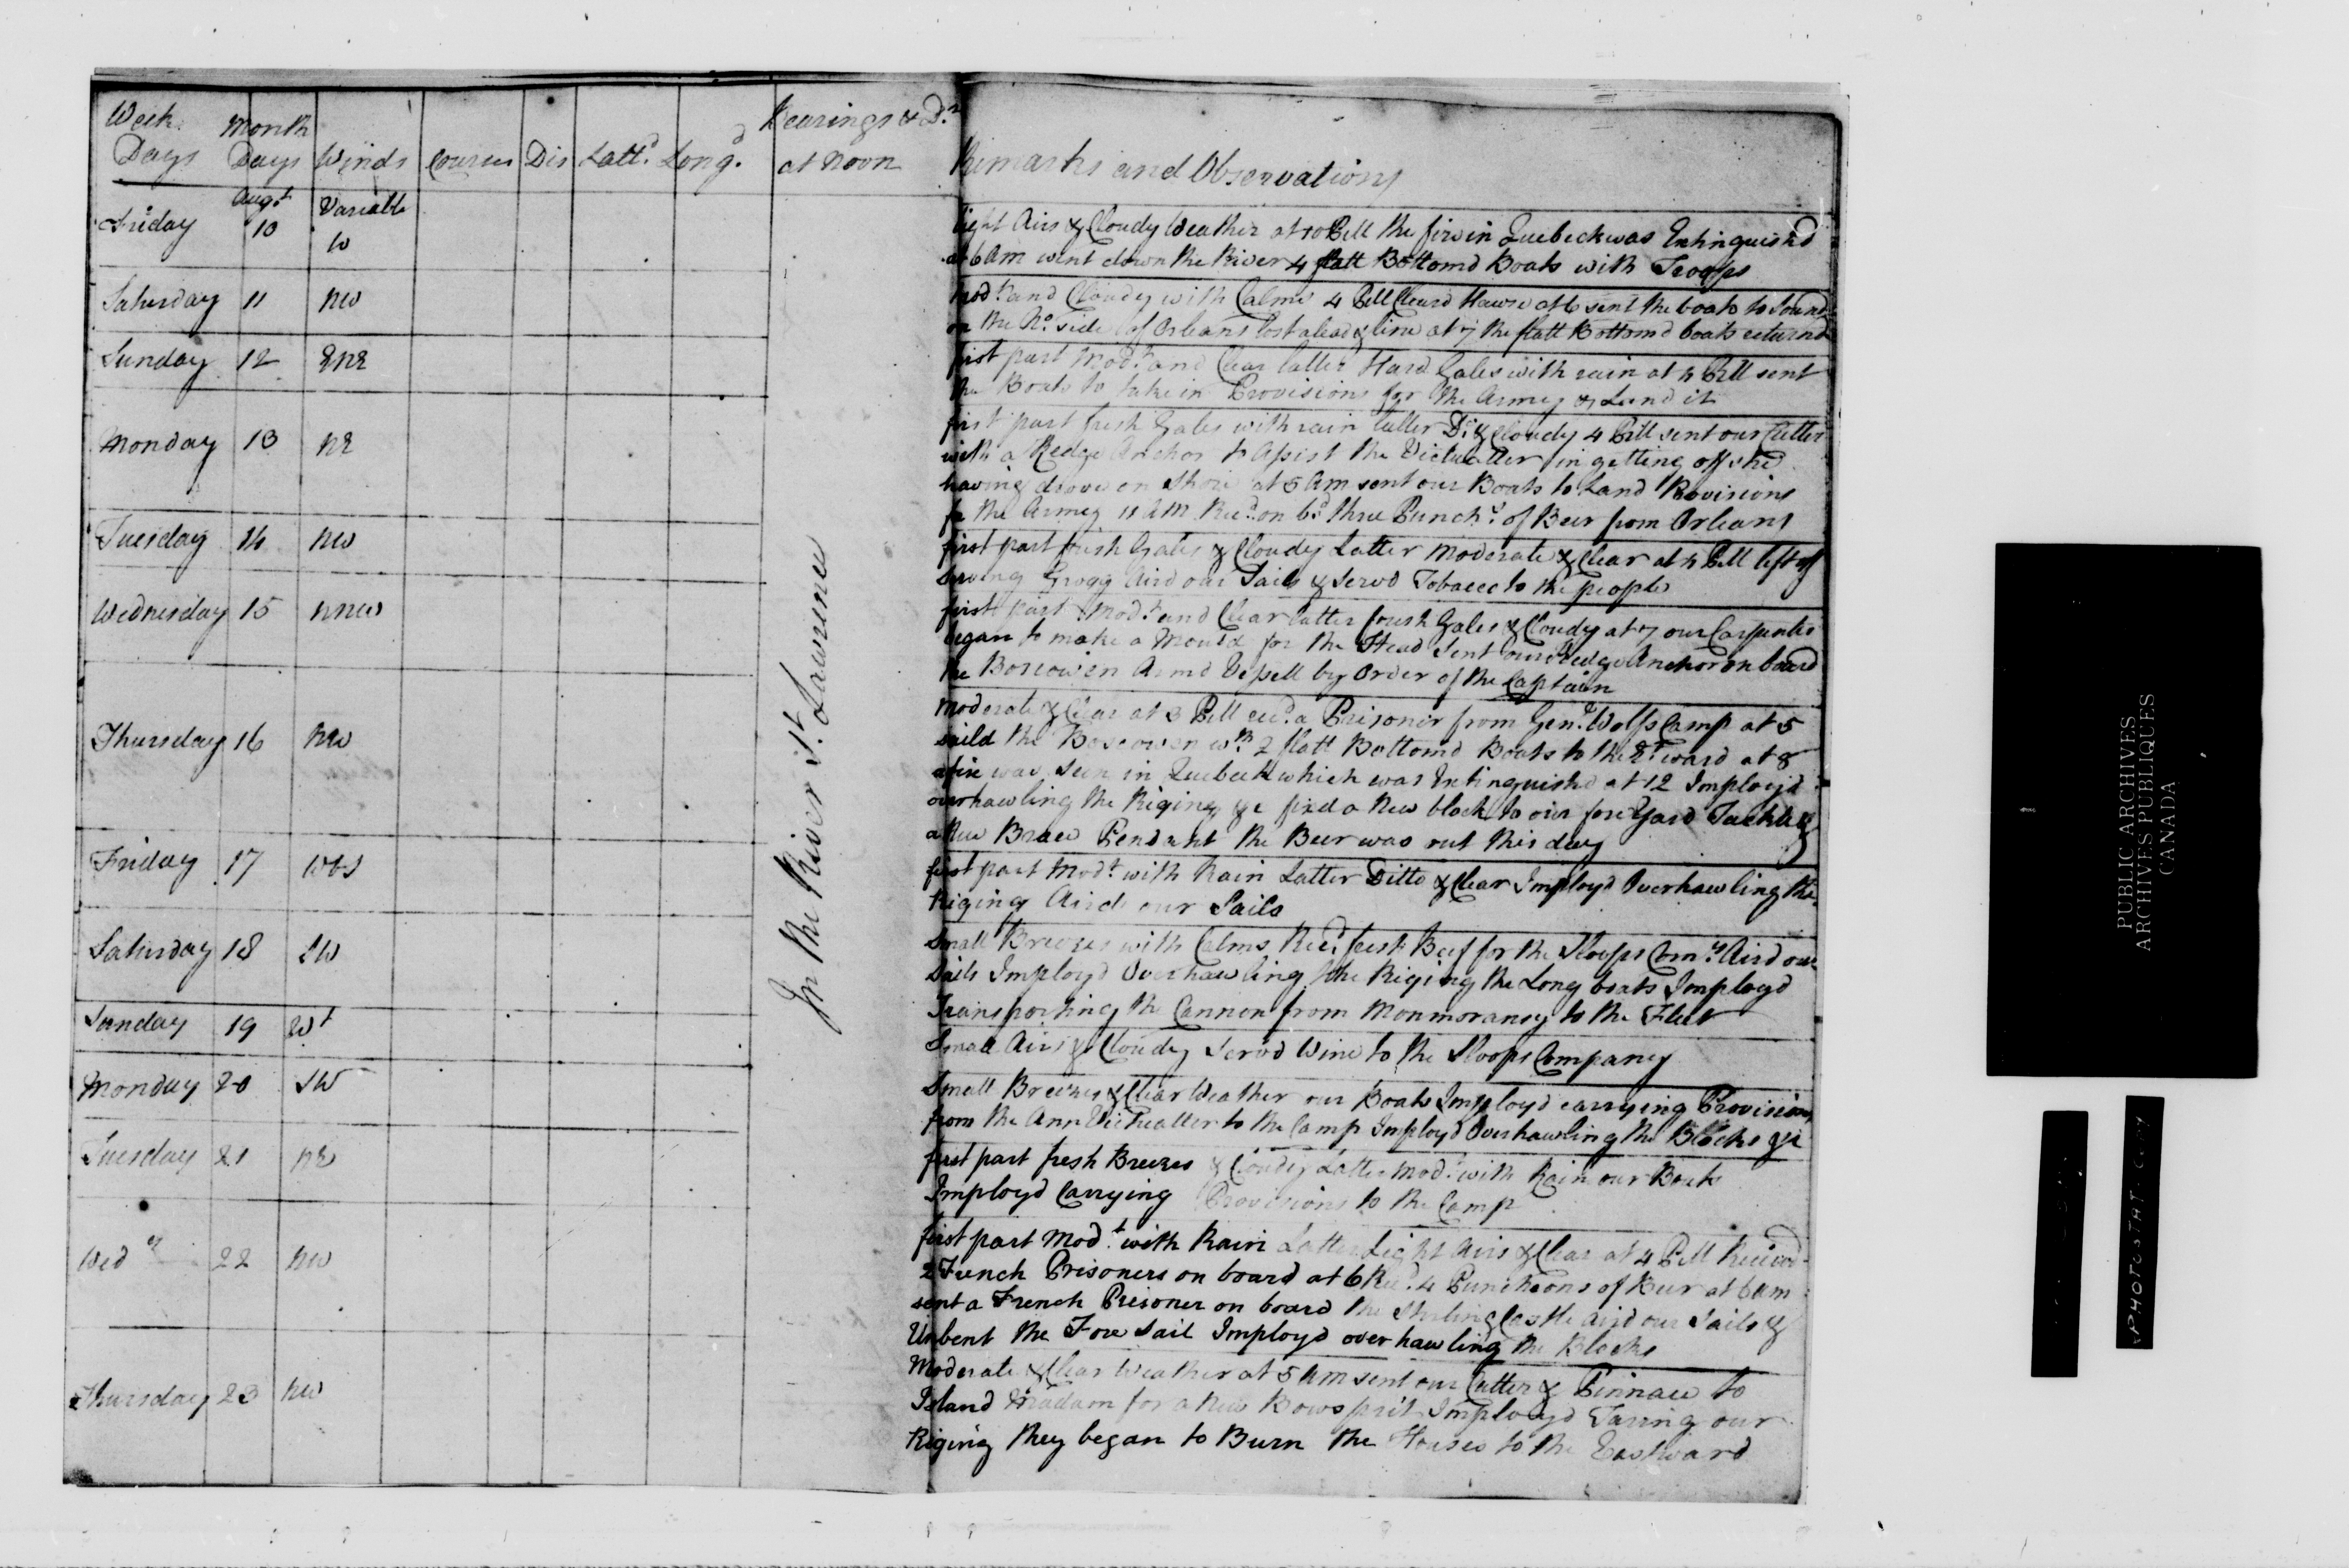 Week Days Month Days Winds Courses Dis Latt.d Long.d Bearings & D.s at Noon Remarks and Observations
Friday Augt 10 Variable W
light Airs & Cloudy Weather at 10 PM the fire in Quebeck was Extinguish'd
at 6 AM went down the River 4 flatt Bottomd Boats with Troops
Saturday 11 NW
Modt and Cloudy with Calms 4 PM Cleard Hawse at 6 sent the boats to Sound
on the No. side of Orleans lost a lead & line at 7 the flatt Bottomd boats returnd
Sunday 12 ENE
first part Modt and Clear latter Hard Gales with rain at 4 PM sent
the Boats to take in Provisions for the Army & Land it
Monday 13 NE
first part fresh Gales with rain latter Do. & Cloudy 4 PM sent our Cutter
with a Kedge Anchor to Assist the Victualler in getting off she
having drove on Shore at 5 AM sent our Boats to Land Provisions
for the Army 11 AM Recd. on bd. three Punchs. of Beer from Orleans
Tuesday 14 NW
first part fresh Gales & Cloudy Latter Moderate & Clear at 4 PM left off
Serving Grogg Aird our Sails & Servd Tobacco to the people
Wednesday 15 NNW
first part Modt and Clear latter fresh Gales & Cloudy at 7 our Carpenter
began to make a Mould for the Head Sent our Kedge Anchor on board
the Boscowen Armd Vessell by Order of the Captain
Thursday 16 NW
Moderate & Clear at 3 PM recd. a Prisoner from Genl. Wolfs Camp at 5
saild the Boscowen wth 2 flatt Bottomd Boats to the Et ward at 8
a fire was seen in Quebeck which was Extinguishd at 12 Imployd
overhawling the Riging &c fixd a New block to our fore Yard Tackle &
a New Brace Pendant the Beer was out this day
Friday 17 WbS
first part Modt. with Rain Latter Ditto & Clear Imployd Overhawling the
Riging Aird our Sails
Saturday 18 SW
Small Breezes with Calms Recd. fresh Beef for the Sloops Comy. Aird our
Sails Imployd Overhawling the Riging the Long boats Imployd
Transporting the Cannon from Monmorancy to the Fleet
Sunday 19 Wt
Small Airs & Cloudy Servd Wine to the Sloops Company
Monday 20 SW
Small Breezes & Clear Weather our Boats Imployd carrying Provisions
from the Ann Victualler to the Camp Imployd Overhawling the Blocks &c
Tuesday 21 NE
first part fresh Breezes & Cloudy Latter Modt. with Rain our Boats
Imployd Carrying Provisions to the Camp
Wedy 22 NW
first part Modt. with Rain Latter Light Airs & Clear at 4 PM Receivd
2 French Prisoners on board at 6 Recd. 4 Puncheons of Beer at 6 AM
sent a French Prisoner on board the Sterling Castle Aird our Sails &
Unbent the Fore Sail Imployd over hawling the Blocks
Thursday 23 NW
Moderate & Clear Weather at 5 AM sent our Cutter & Pinnace to
Island Madam for a New Bowsprit Imployd Taring our
Riging they began to Burn the Houses to the Eastward
In the River St. Lawrence
PUBLIC ARCHIVES
ARCHIVES PUBLIQUES
CANADA
PHOTOSTAT COPY